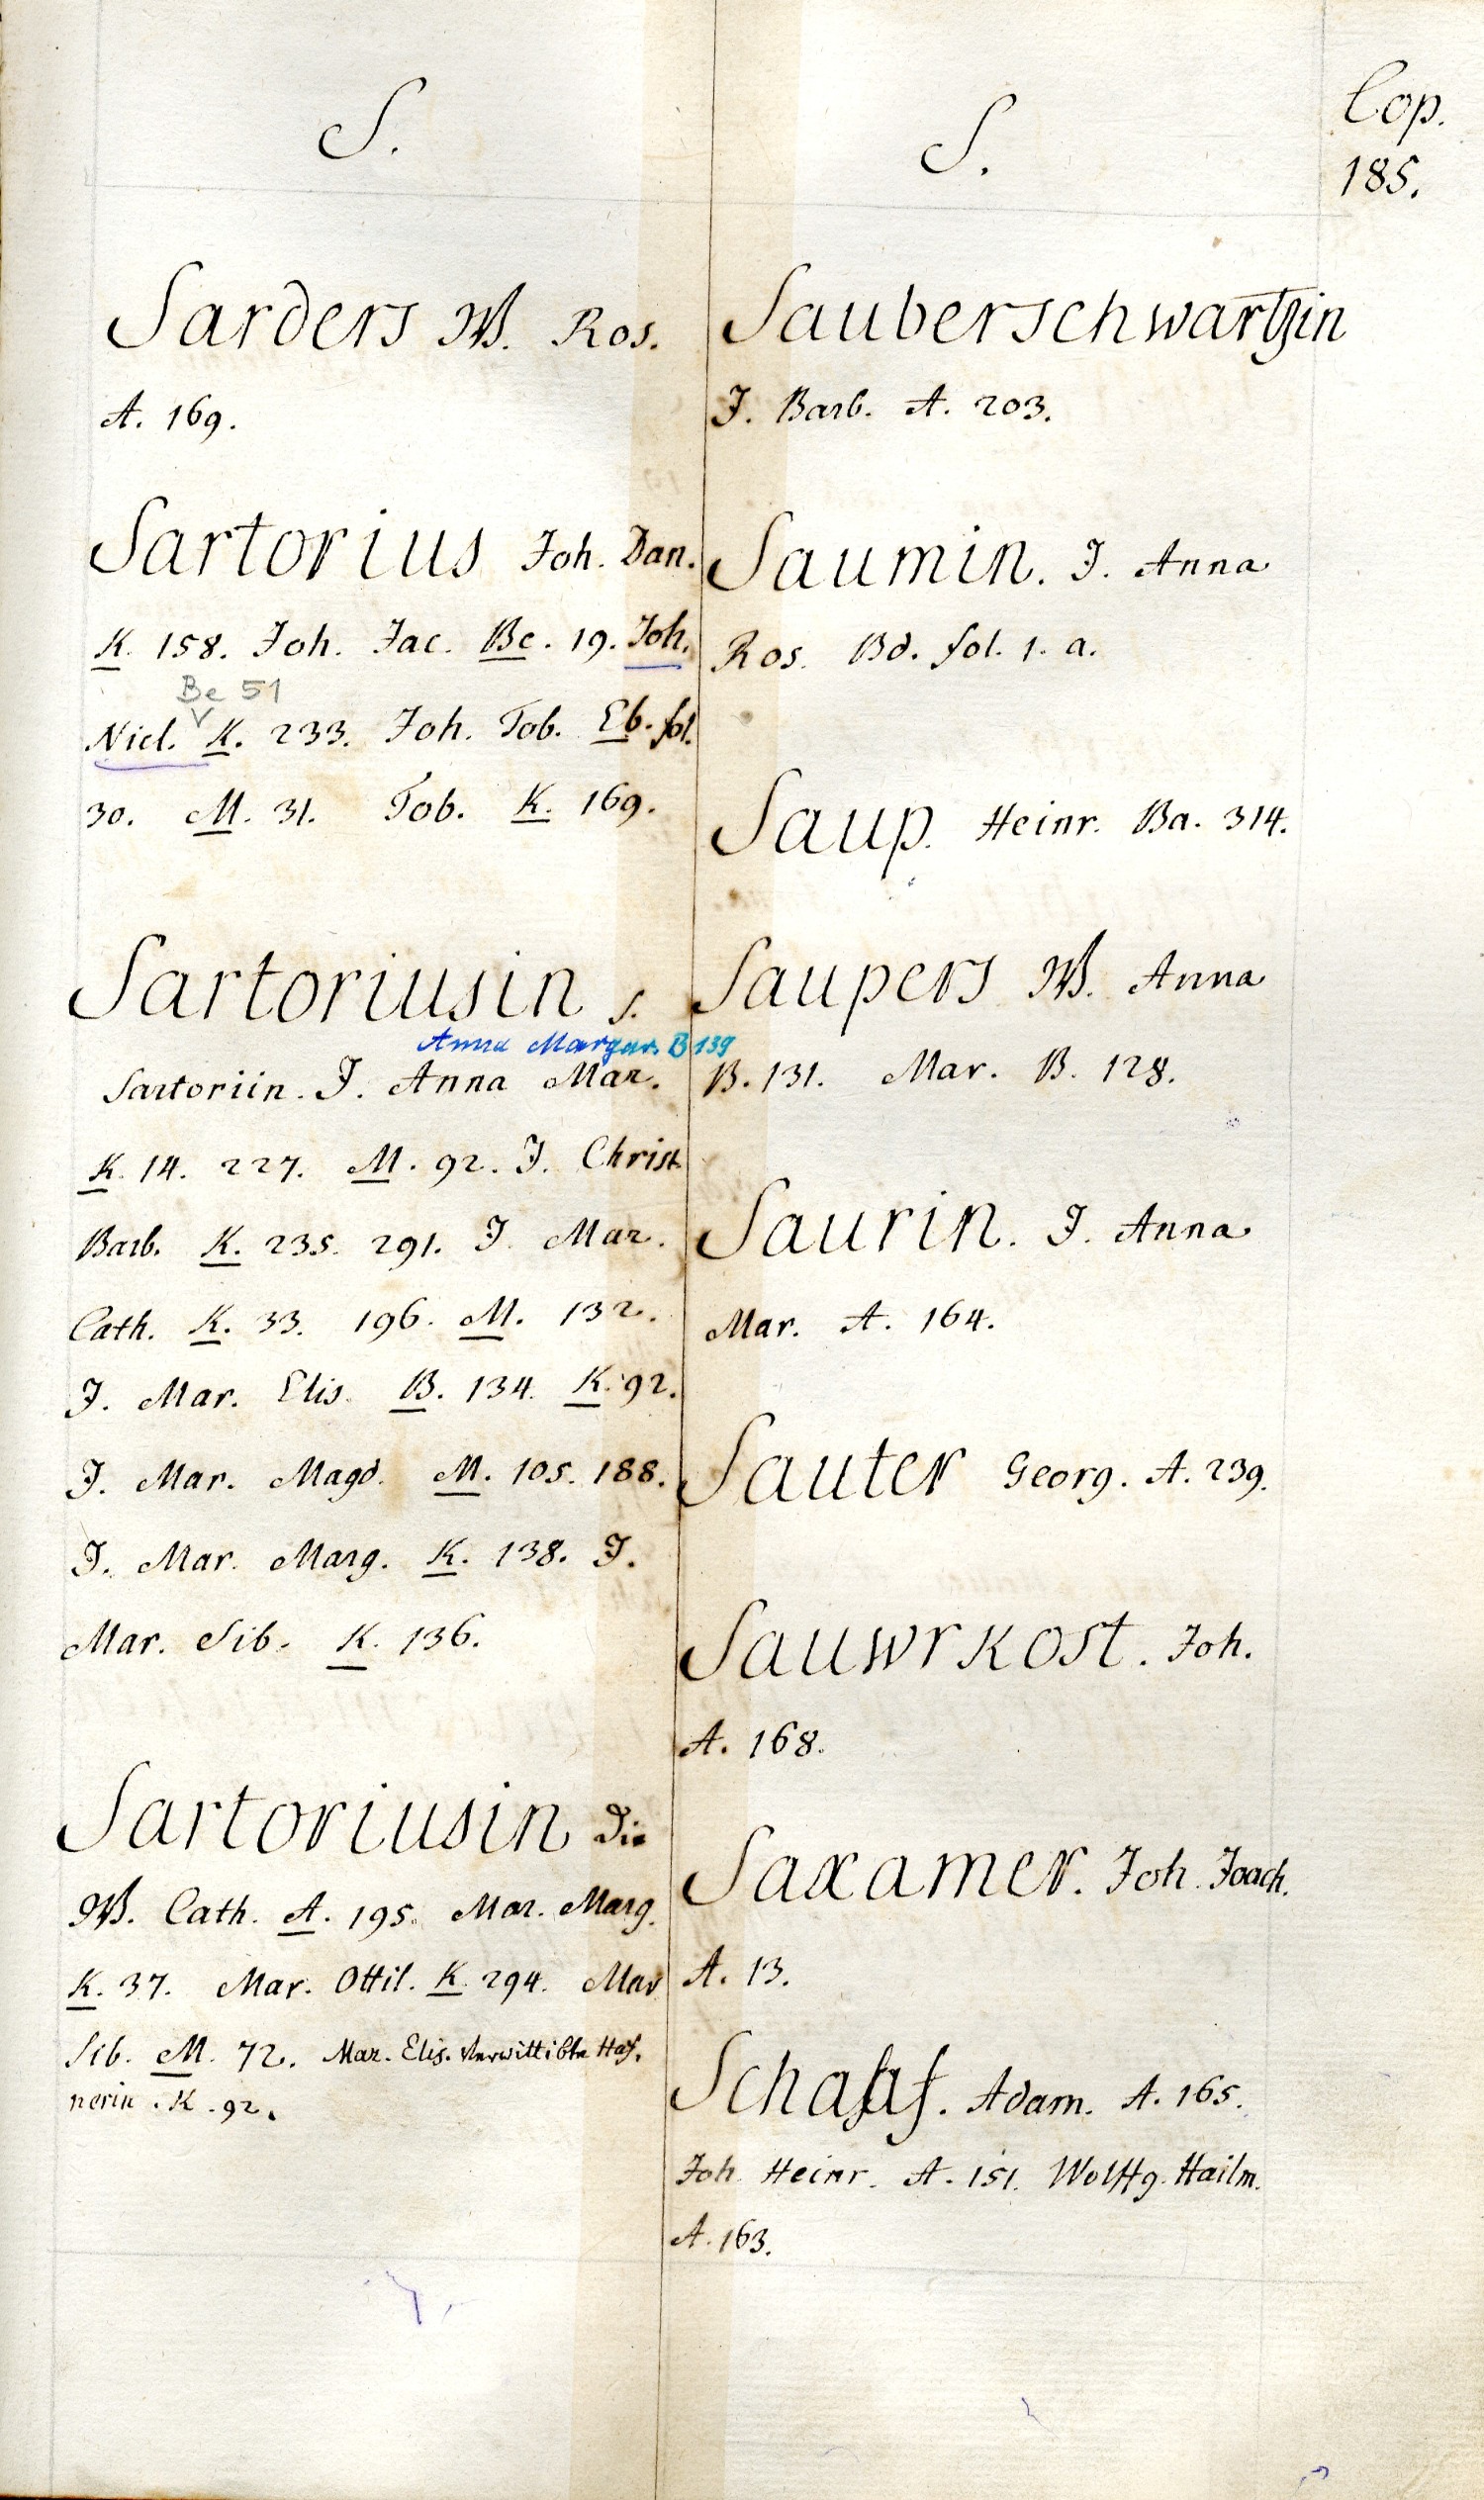 S.
Sarders W. Ros.
A. 169.
Sartorius Joh. Dan.
K. 158. Joh. Jac. Bc. 19. Joh.
Be 51
Nicl. K. 233. Joh. Tob. Eb. fol.
30. M. 31. Tob. K. 169.
Sartoriusin s.
Anna Margar. B 139
Sartoriin. J. Anna Mar.
K. 14. 227. M. 92. J. Christ.
Barb. K. 235. 291. J. Mar.
Cath. K. 33. 196. M. 132.
J. Mar. Elis. B. 134. K. 92.
J. Mar. Magd. M. 105. 188.
J. Mar. Marg. K. 138. J.
Mar. Sib. K. 136.
Sartoriusin Die
W. Cath. A. 195. Mar. Marg.
K. 37. Mar. Ottil. K. 294. Mar
Sib. M. 72. Mar. Elis. verwittibte Haf.
nerin. K. 92.
S.
Sauberschwartzin
J. Barb. A. 203.
Saumin. J. Anna
Ros. Bd. fol. 1. a.
Saup. Heinr. Ba. 314.
Saupers W. Anna
B. 131. Mar. B. 128.
Saurin. J. Anna
Mar. A. 164.
Sauter Georg. A. 239.
Sauwrkost. Joh.
A. 168.
Saxamer. Joh. Joach.
A. 13.
Schaaf. Adam. A. 165.
Joh. Heinr. A. 151. Wolffg. Hailm.
A. 163.
Cop.
185.